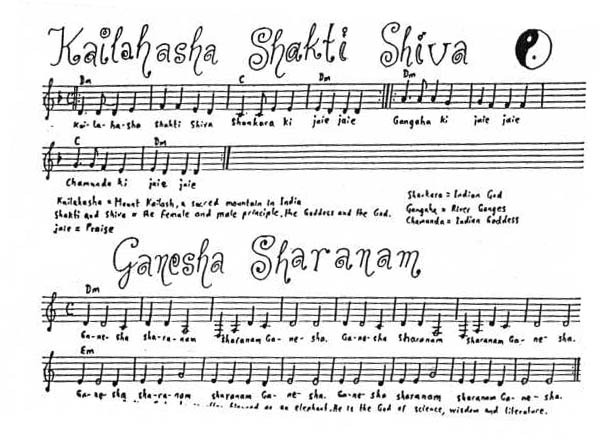 Kailahasha Shakti Shiva
Dm C Dm Dm
Kai-la-ha-sha Shakti Shiva Shankara ki jaie jaie Gangaha ki jaie jaie
C Dm
Chamunda ki jaie jaie
Kailahasha = Mount Kailash, a sacred mountain in India
Shakti and Shiva = the female and male principle, the Goddess and the God.
jaie = Praise
Shankara = Indian God
Gangaha = River Ganges
Chamanda = Indian Goddess
Ganesha Sharanam
Dm
Ga-ne-sha sha-ra-nam sharanam Ga-ne-sha. Ga-ne-sha Sharanam sharanam Ga-ne-sha.
Em
Ga-ne-sha sha-ra-nam sharanam Ga-ne-sha. Ga-ne-sha sharanam sharanam Ga-ne-sha.
as an elephant. He is the God of science, wisdom and literature.